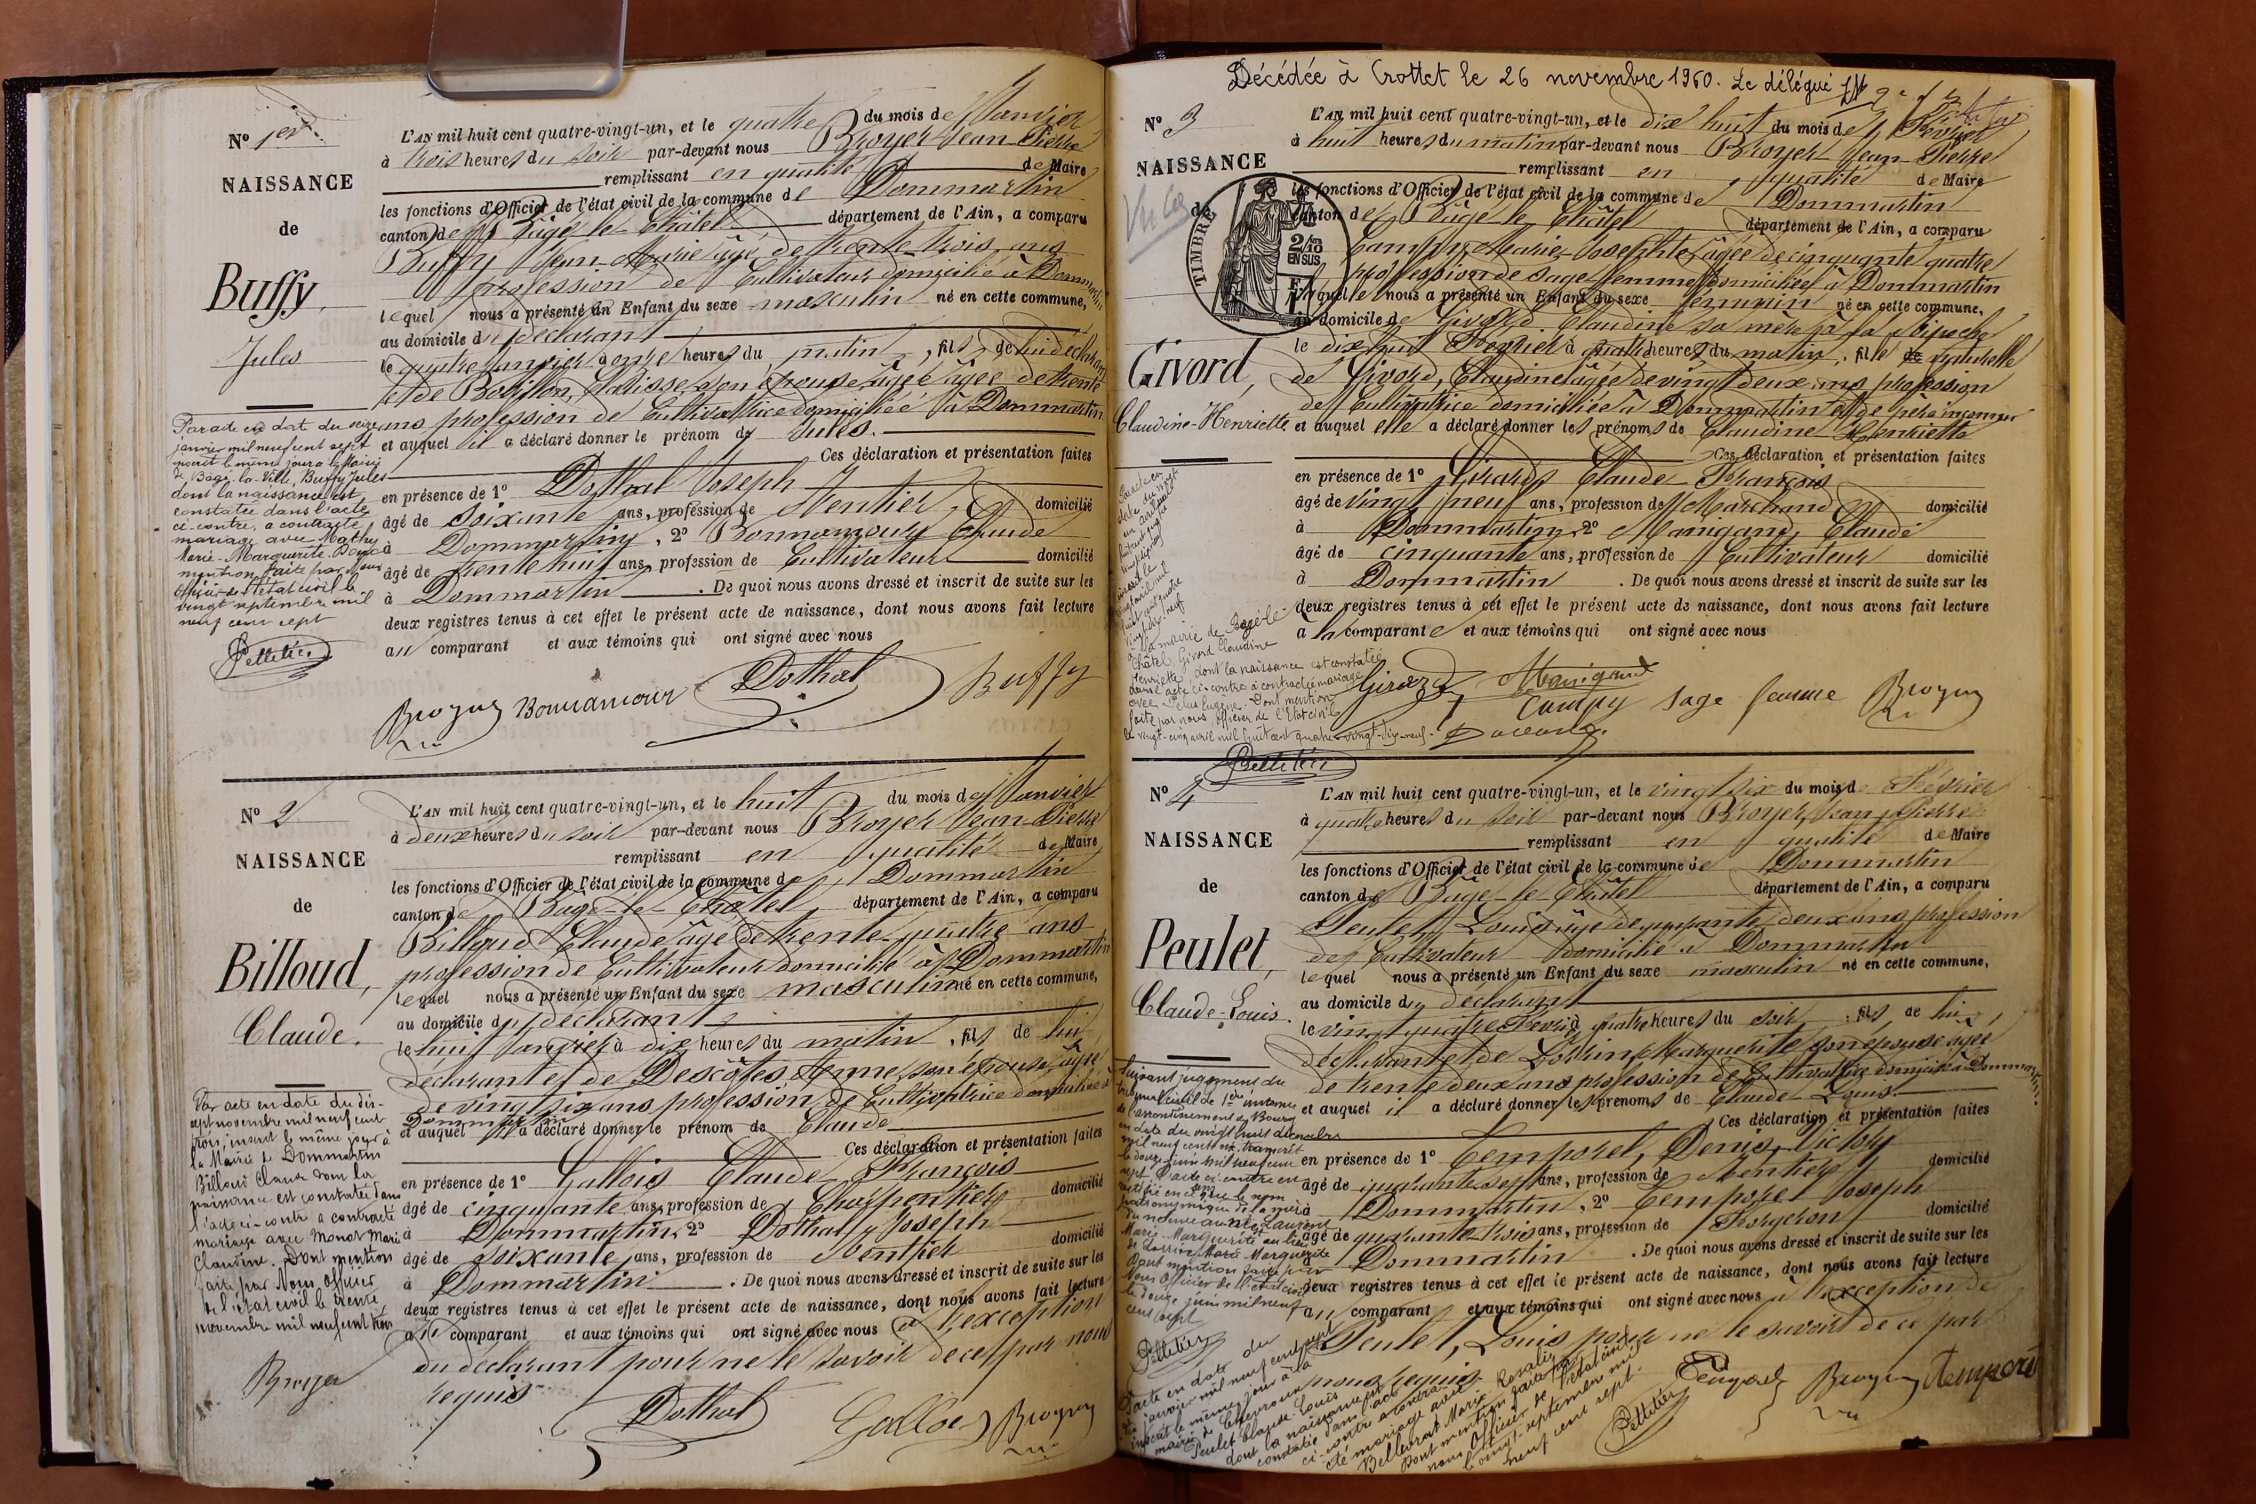 N° 1er
NAISSANCE
de
Buffy,
Jules
Par acte en dat du seize
janvier mil neuf cent sept
inscrit le même jour a la Mairie
de Bagé-la-Ville, Buffy Jules
dont la naissance est
constatée dans l'acte
ci-contre, a contracté
mariage avec Mathy
Marie-Marguerite. Dont
mention faite par Nous
Officier de l'état civil le
vingt septembre mil
neuf cent sept
Pelletier
L'AN mil huit cent quatre-vingt-un, et le quatre du mois de Janvier
à trois heures du soir par-devant nous Broyer Jean-Pierre
remplissant en qualité de Maire
les fonctions d'Officier de l'état civil de la commune de Dommartin
canton de Bâgé-le-Châtel département de l'Ain, a comparu
Buffy Jean-Marie âgé de trente trois ans
profession de Cultivateur domicilié à Dommartin
lequel nous a présenté un Enfant du sexe masculin né en cette commune,
au domicile du déclarant
le quatre Janvier à onze heures du matin, fils de lui déclarant
et de Bosillon, Narisse son épouse âgée âgée de trente
ans profession de Cultivatrice domiciliée à Dommartin
et auquel il a déclaré donner le prénom de Jules.
Ces déclaration et présentation faites
en présence de 1° Dothal Joseph
âgé de Soixante ans, profession de Rentier domicilié
à Dommartin, 2° Bonnamour Claude
âgé de trente huit ans, profession de Cultivateur domicilié
à Dommartin. De quoi nous avons dressé et inscrit de suite sur les
deux registres tenus à cet effet le présent acte de naissance, dont nous avons fait lecture
au comparant et aux témoins qui ont signé avec nous
Broyer Bonnamour Dothal Buffy
N° 2
NAISSANCE
de
Billoud,
Claude.
Par acte en date du dix-
sept novembre mil neuf cent
trois, inscrit le même jour à
la Mairie de Dommartin
Billoud Claude dont la
naissance est constatée dans
l'acte ci-contre a contracté
mariage avec Monot Marie
Claudine. Dont mention
faite par Nous, Officier
de l'état civil le trente
novembre mil neuf cent trois
Broyer
L'AN mil huit cent quatre-vingt-un, et le huit du mois de Janvier
à deux heures du soir par-devant nous Broyer Jean-Pierre
remplissant en qualité de Maire
les fonctions d'Officier de l'état civil de la commune de Dommartin
canton de Bâgé-le-Châtel département de l'Ain, a comparu
Billoud Claude âgé de trente-quatre ans
profession de Cultivateur domicilié à Dommartin
lequel nous a présenté un Enfant du sexe masculin né en cette commune,
au domicile du déclarant
le huit Janvier à dix heures du matin, fils de lui
déclarant et de Descôtes Anne, son épouse âgée
de vingt six ans profession de Cultivatrice domiciliée à
Dommartin
et auquel il a déclaré donner le prénom de Claude
Ces déclaration et présentation faites
en présence de 1° Gallois Claude François
âgé de cinquante ans, profession de Charpentier domicilié
à Dommartin, 2° Dothal Joseph
âgé de soixante ans, profession de Rentier domicilié
à Dommartin. De quoi nous avons dressé et inscrit de suite sur les
deux registres tenus à cet effet le présent acte de naissance, dont nous avons fait lecture
au comparant et aux témoins qui ont signé avec nous à l'exception
du déclarant pour ne le savoir de ce par nous
requis
Dothal Gallois Broyer
Décédée à Crottet le 26 novembre 1960. Le délégué
N° 3
NAISSANCE
de
TIMBRE
2/10
EN SUS
Givord,
Claudine-Henriette
à la mairie de Bagé-le-
Châtel, Givord Claudine
Henriette dont la naissance est constatée
dans l'acte ci-contre a contracté mariage
avec Eugène. Dont mention
faite par nous, officier de l'Etat civil
le vingt-cinq avril mil huit cent quatre-vingt-dix-neuf.
Pelletier
L'AN mil huit cent quatre-vingt-un, et le dix huit du mois de Février
à huit heures du matin par-devant nous Broyer Jean-Pierre
remplissant en qualité de Maire
les fonctions d'Officier de l'état civil de la commune de Dommartin
canton de Bâgé-le-Châtel département de l'Ain, a comparu
Campy Marie-Josephte âgée de cinquante quatre
profession de sage femme domiciliée à Dommartin
laquelle nous a présenté un Enfant du sexe féminin né en cette commune,
au domicile de Givord Claudine sa mère à la
le dix huit Février à quatre heures du matin, fille naturelle
de Givord, Claudine âgée de vingt deux ans profession
de Cultivatrice domiciliée à Dommartin et de père inconnu
et auquel elle a déclaré donner les prénoms de Claudine Henriette
Ces déclaration et présentation faites
en présence de 1° Girard Claude François
âgé de vingt neuf ans, profession de Marchand domicilié
à Dommartin, 2° Manigand, Claude
âgé de cinquante ans, profession de Cultivateur domicilié
à Dommartin. De quoi nous avons dressé et inscrit de suite sur les
deux registres tenus à cet effet le présent acte de naissance, dont nous avons fait lecture
a la comparante et aux témoins qui ont signé avec nous
Girard Manigand
Campy sage femme Broyer
N° 4
NAISSANCE
de
Peulet,
Claude-Louis.
Suivant jugement du
tribunal civil de 1ère instance
de l'arrondissement de Bourg
en date du vingt huit décembre
mil neuf cent six, transcrit
le douze juin mil neuf cent
sept l'acte ci-contre est
rectifié en ce sens que le nom
patronymique de la mère
du nouveau né Laurent
Marie-Marguerite au lieu
de Lorrin, Marie Marguerite
Dont mention faite par
Nous Officier de l'état civil
le douze juin mil neuf
cent sept
Pelletier
Par acte en date du
janvier mil neuf cent sept
inscrit le même jour à la
mairie de Chevroux
Peulet Claude-Louis
dont la naissance est
constatée dans l'acte
ci-contre a contracté
mariage avec
Bellevrat Marie Rosalie
Dont mention faite par
nous Officier de l'état civil
le vingt-septembre mil
neuf cent sept.
Pelletier
L'AN mil huit cent quatre-vingt-un, et le vingt six du mois de Février
à quatre heures du soir par-devant nous Broyer, Jean-Pierre
remplissant en qualité de Maire
les fonctions d'Officier de l'état civil de la commune de Dommartin
canton de Bâgé-le-Châtel département de l'Ain, a comparu
Peulet, Louis âgé de quarante deux ans profession
de Cultivateur domicilié à Dommartin
lequel nous a présenté un Enfant du sexe masculin né en cette commune,
au domicile du déclarant
le vingt quatre Février à quatre heures du soir, fils de lui
déclarant et de Lorrin, Marguerite son épouse âgée
de trente deux ans profession de Cultivatrice domiciliée à Dommartin
et auquel il a déclaré donner les prénoms de Claude Louis.
Ces déclaration et présentation faites
en présence de 1° Temporel, Denis, Victor
âgé de quarante sept ans, profession de Rentier domicilié
à Dommartin, 2° Temporel Joseph
âgé de quarante-trois ans, profession de Forgeron domicilié
à Dommartin. De quoi nous avons dressé et inscrit de suite sur les
deux registres tenus à cet effet le présent acte de naissance, dont nous avons fait lecture
au comparant et aux témoins qui ont signé avec nous à l'exception de
Peulet, Louis pour ne le savoir de ce par
nous requis
Temporel Broyer Temporel